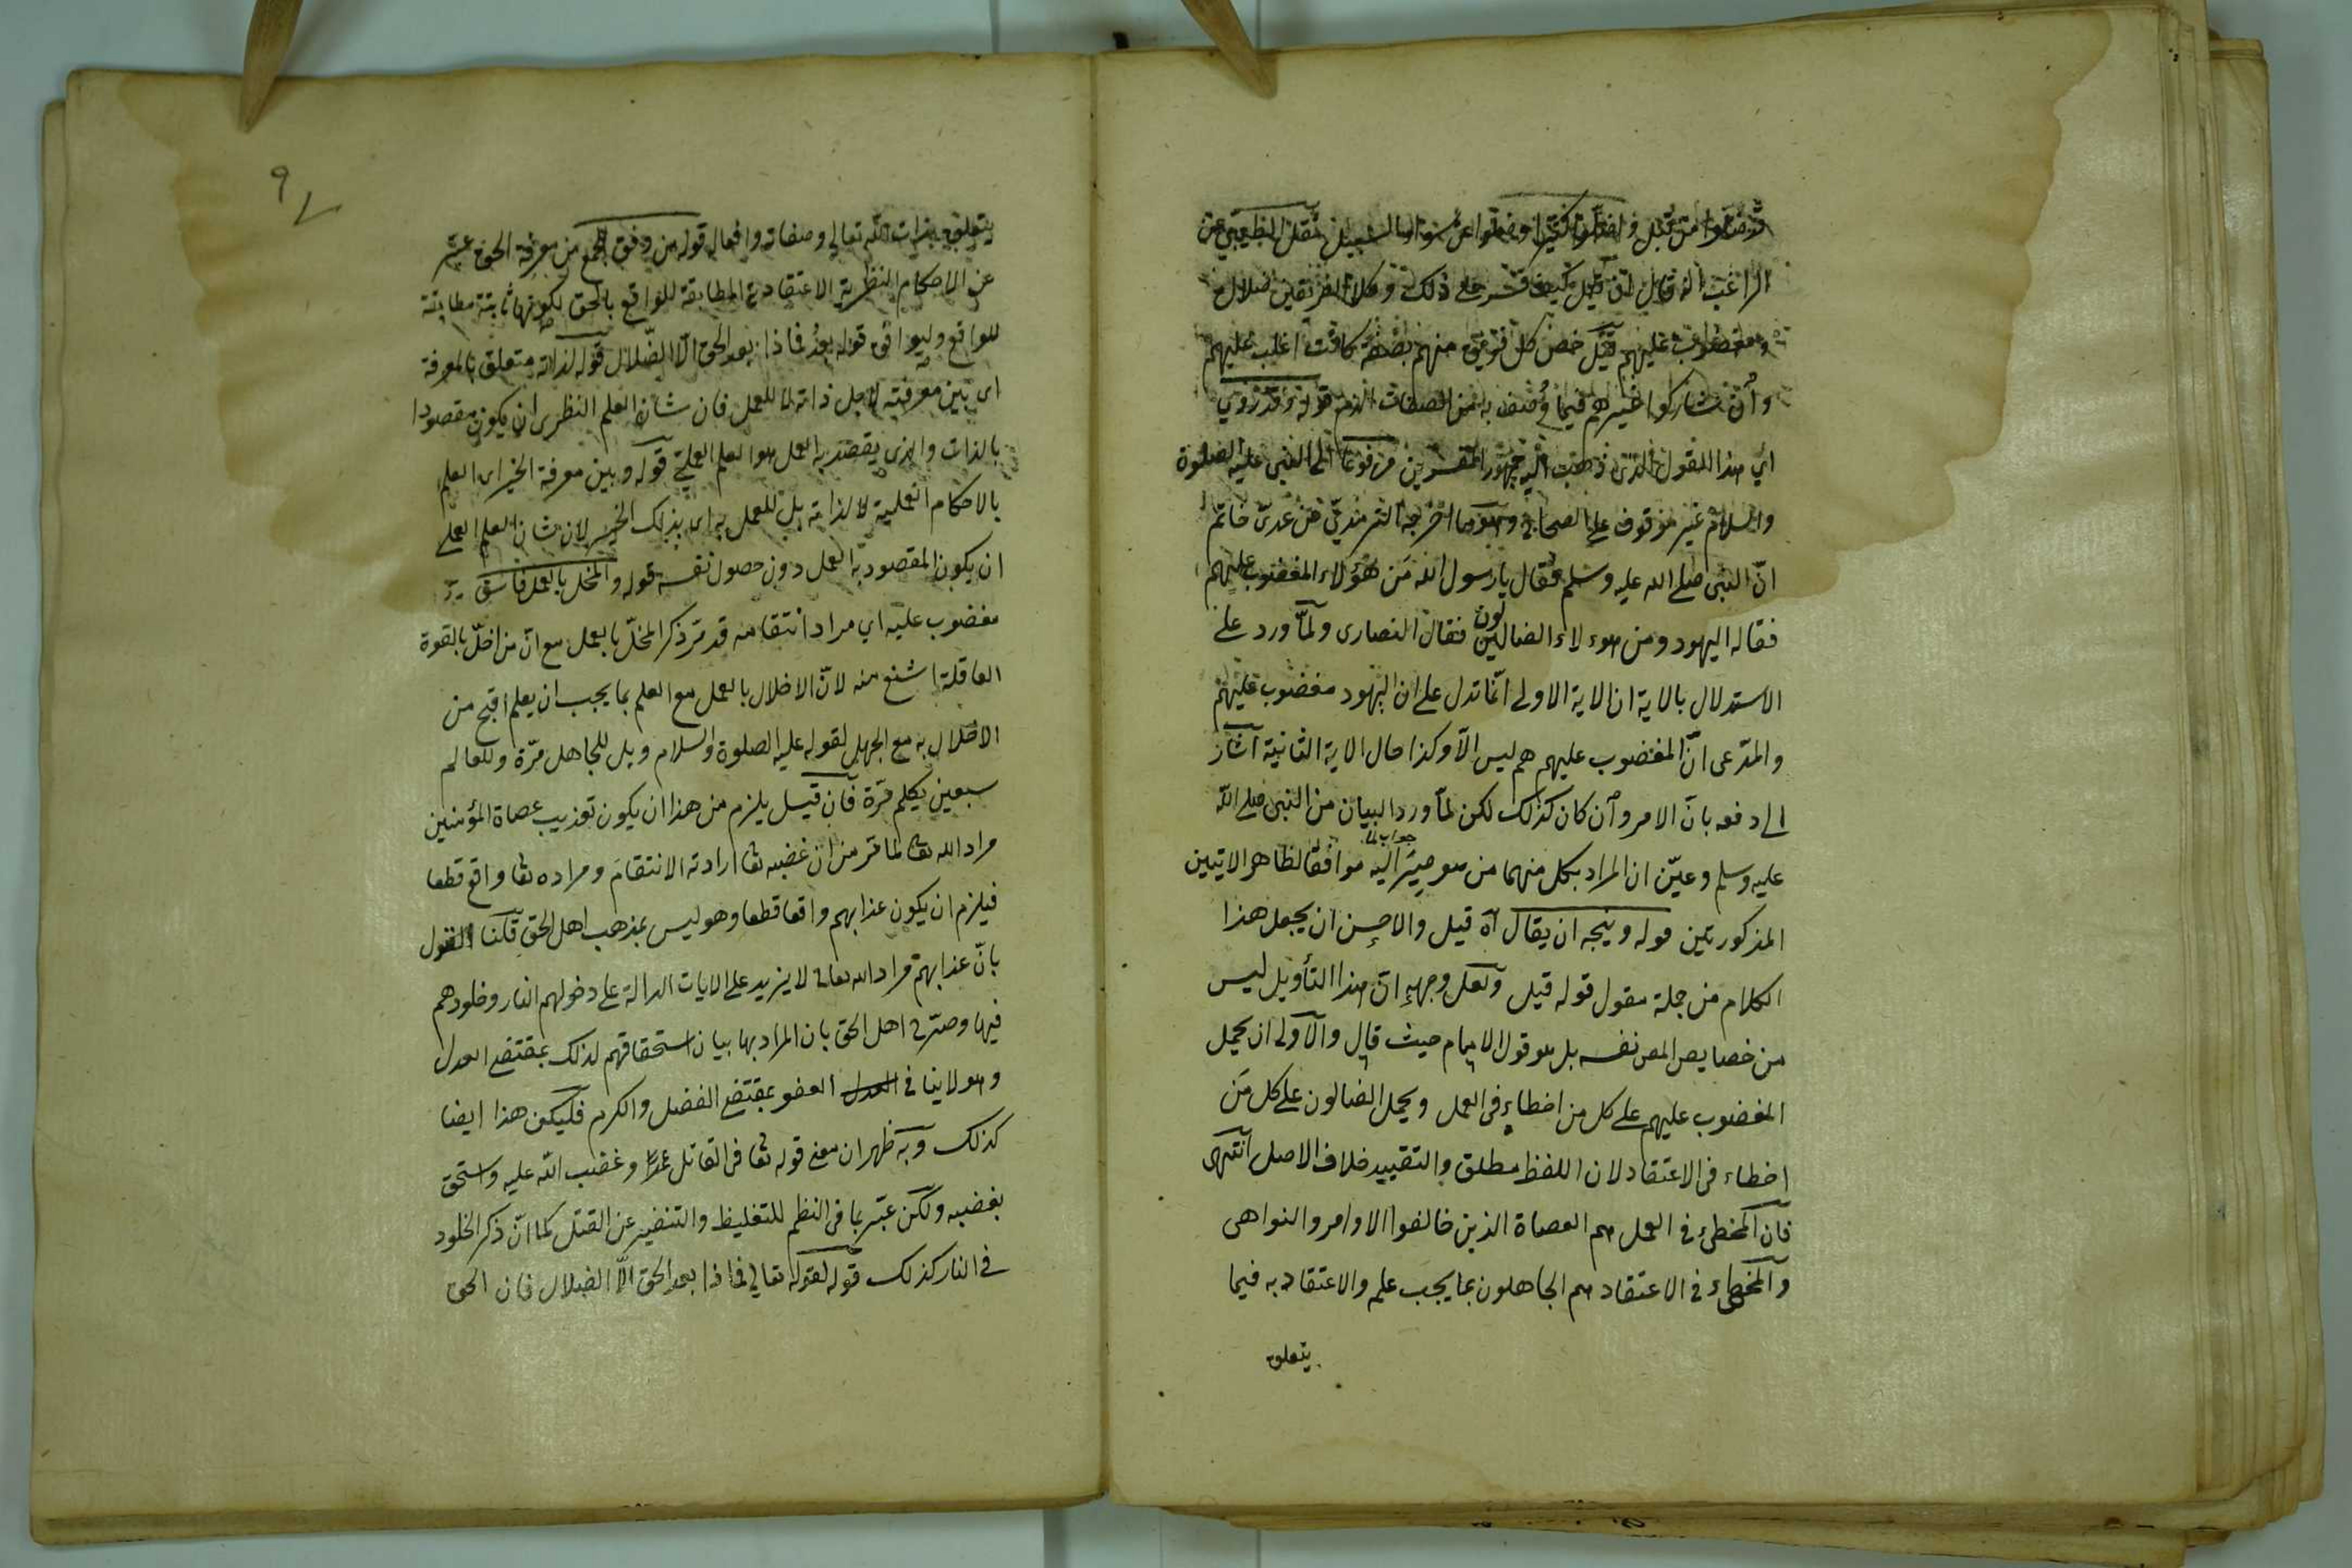 قد ضلوا من قبل واضلوا كثيرا وضلوا عن سواء السبيل نقل الطيبي عن
الراغب انه قال ان قيل كيف فسر على ذلك وكلا الفريقين ضلال
ومغضوب عليهم قيل خص كل فريق منهم بصفة كانت اغلب عليهم
وان شاركوا غيرهم فيما وصف به من الصفات الذم قوله وقد روي
اي هذا القول الذي ذهب اليه جمهور المفسرين مرفوعا الى النبي عليه الصلوة
والسلام غير موقوف على الصحابي وهو ما اخرجه الترمذي عن عدي حاتم
انّ النبي صلى الله عليه وسلم فقال يا رسول الله مَن هؤلاء المغضوب عليهم
فقال اليهود ومن هوءلاء الضالين لون فقال النصارى ولمّا ورد على
الاستدلال بالاية ان الاية الاولى انّما تدل على ان اليهود مغضوب عليهم
والمدّعى انّ المغضوب عليهم هم ليس الّا وكذا حال الاية الثانية اشار
الى دفعه بانّ الامر وان كان كذلك لكن لمّا ورد البيان من النبي صلى الله
عليه وسلم وعيّن ان المراد بكل منهما من هو صِيْرَ اليه موافقا لظاهر الايتين
جواب لما
المذكورتين قوله ويتجه ان يقال آه قيل والاحسن ان يجعل هذا
الكلام من جملة مقول قوله قيل ولعل وجهه انّ هذا التأويل ليس
من خصايص المص نفسه بل هو قول الامام حيث قال والاولى ان يحمل
المغضوب عليهم على كل من اخطاء في العمل ويحمل الضالون على كل مَن
اخطاء في الاعتقاد لان اللفظ مطلق والتقييد خلاف الاصل انتهى
فان المخطئ في العمل هم العصاة الذين خالفوا الاوامر والنواهى
والمخطئ في الاعتقاد هم الجاهلون بما يجب علم والاعتقاد به فيما
يتعلق
٩
يتعلق بذات الله تعالى وصفاته وافعاله قوله من وفق للجمع من معرفة الحق عبّر
عن الاحكام النظرية الاعتقادية المطابقة للواقع بالحق لكونها ثابتة مطابقة
للواقع وليوافق قوله بعد فماذا بعد الحق الّا الضّلال قوله لذاته متعلق بالمعرفة
اى بين معرفته لاجل ذاته لا للعمل فان شان العلم النظرى ان يكون مقصودا
بالذات والذى يقصد به العمل هو العلم العملي قوله وبين معرفة الخير اى العلم
بالاحكام العملية لا لذاته بل للعمل به اى بذلك الخير لان شان العلم العملي
ان يكون المقصود به العمل دون حصول نفسه قوله والمخل بالعمل فاسق
مغضوب عليه اي مراد انتقامه قدمّ ذكر المخلّ بالعمل مع انّ من اخلّ بالقوة
العاقلة اشنع منه لانّ الاخلال بالعمل مع العلم بما يجب ان يعلم اقبح من
الاخلال به مع الجهل لقوله عليه الصلوة والسلام ويل للجاهل مرّة وللعالم
سبعين مرّة فان قيل يلزم من هذا ان يكون تعذيب عصاة المؤمنين
مراد الله تعا لما مر من ان غضبه تعا ارادته الانتقام ومراده تعا واقع قطعا
فيلزم ان يكون عذابهم واقعا قطعا وهو ليس بمذهب اهل الحق قلنا القول
بانّ عذابهم مراد الله تعالى لا يزيد على الايات الدالة على دخولهم النار وخلودهم
فيها وصرّح اهل الحق بان المراد بها بيان استحقاقهم لذلك بمقتضى العدل
وهو لا ينافي العدل العفو بمقتضى الفضل والكرم فليكن هذا ايضا
كذلك وبه ظهر ان معنى قوله تعا في القاتل عمدا وغضب الله عليه واستحق
بغضبه ولكن عبّر بما في النظم للتغليظ والتنفير عن القتل كما انّ ذكر الخلود
في النار كذلك قوله لقوله تعالى فماذا بعد الحق الّا الضلال فان الحق